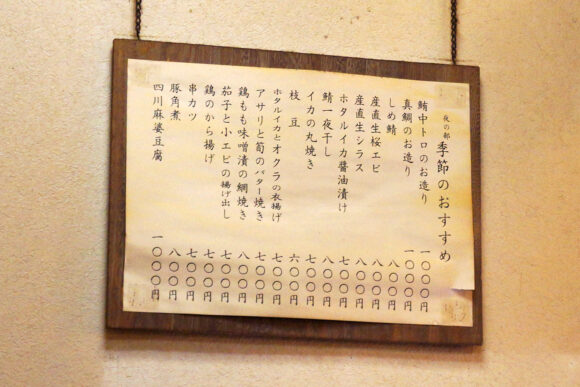 夜の部 季節のおすすめ
鮪中トロのお造り 一〇〇〇円
真鯛のお造り 一〇〇〇円
しめ鯖 八〇〇円
産直生桜エビ 八〇〇円
産直生シラス 八〇〇円
ホタルイカ醤油漬け 七〇〇円
鯖一夜干し 八〇〇円
イカの丸焼き 七〇〇円
枝豆 六〇〇円
ホタルイカとオクラの衣揚げ 七〇〇円
アサリと筍のバター焼き 七〇〇円
鶏もも味噌漬の網焼き 八〇〇円
茄子と小エビの揚げ出し 七〇〇円
鶏のから揚げ 七〇〇円
串カツ 七〇〇円
豚角煮 八〇〇円
四川麻婆豆腐 一〇〇〇円